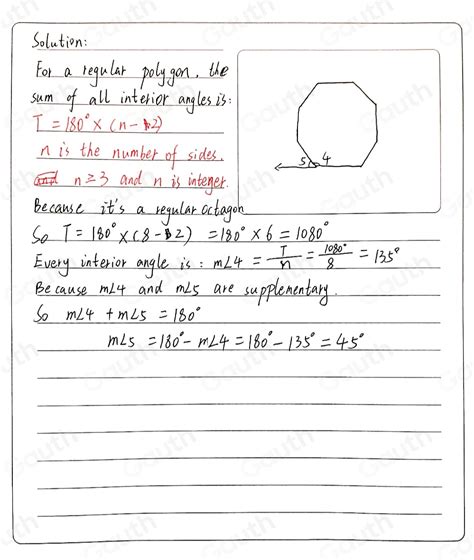 Solution:
For a regular polygon, the
sum of all interior angles is:
T = 180° × (n - 2)
n is the number of sides.
n ≥ 3 and n is integer.
5 4
Because it's a regular octagon
So T = 180° × (8 - 2) = 180° × 6 = 1080°
Every interior angle is : m∠4 = T/n = 1080°/8 = 135°
Because m∠4 and m∠5 are supplementary.
So m∠4 + m∠5 = 180°
m∠5 = 180° - m∠4 = 180° - 135° = 45°
Gauth